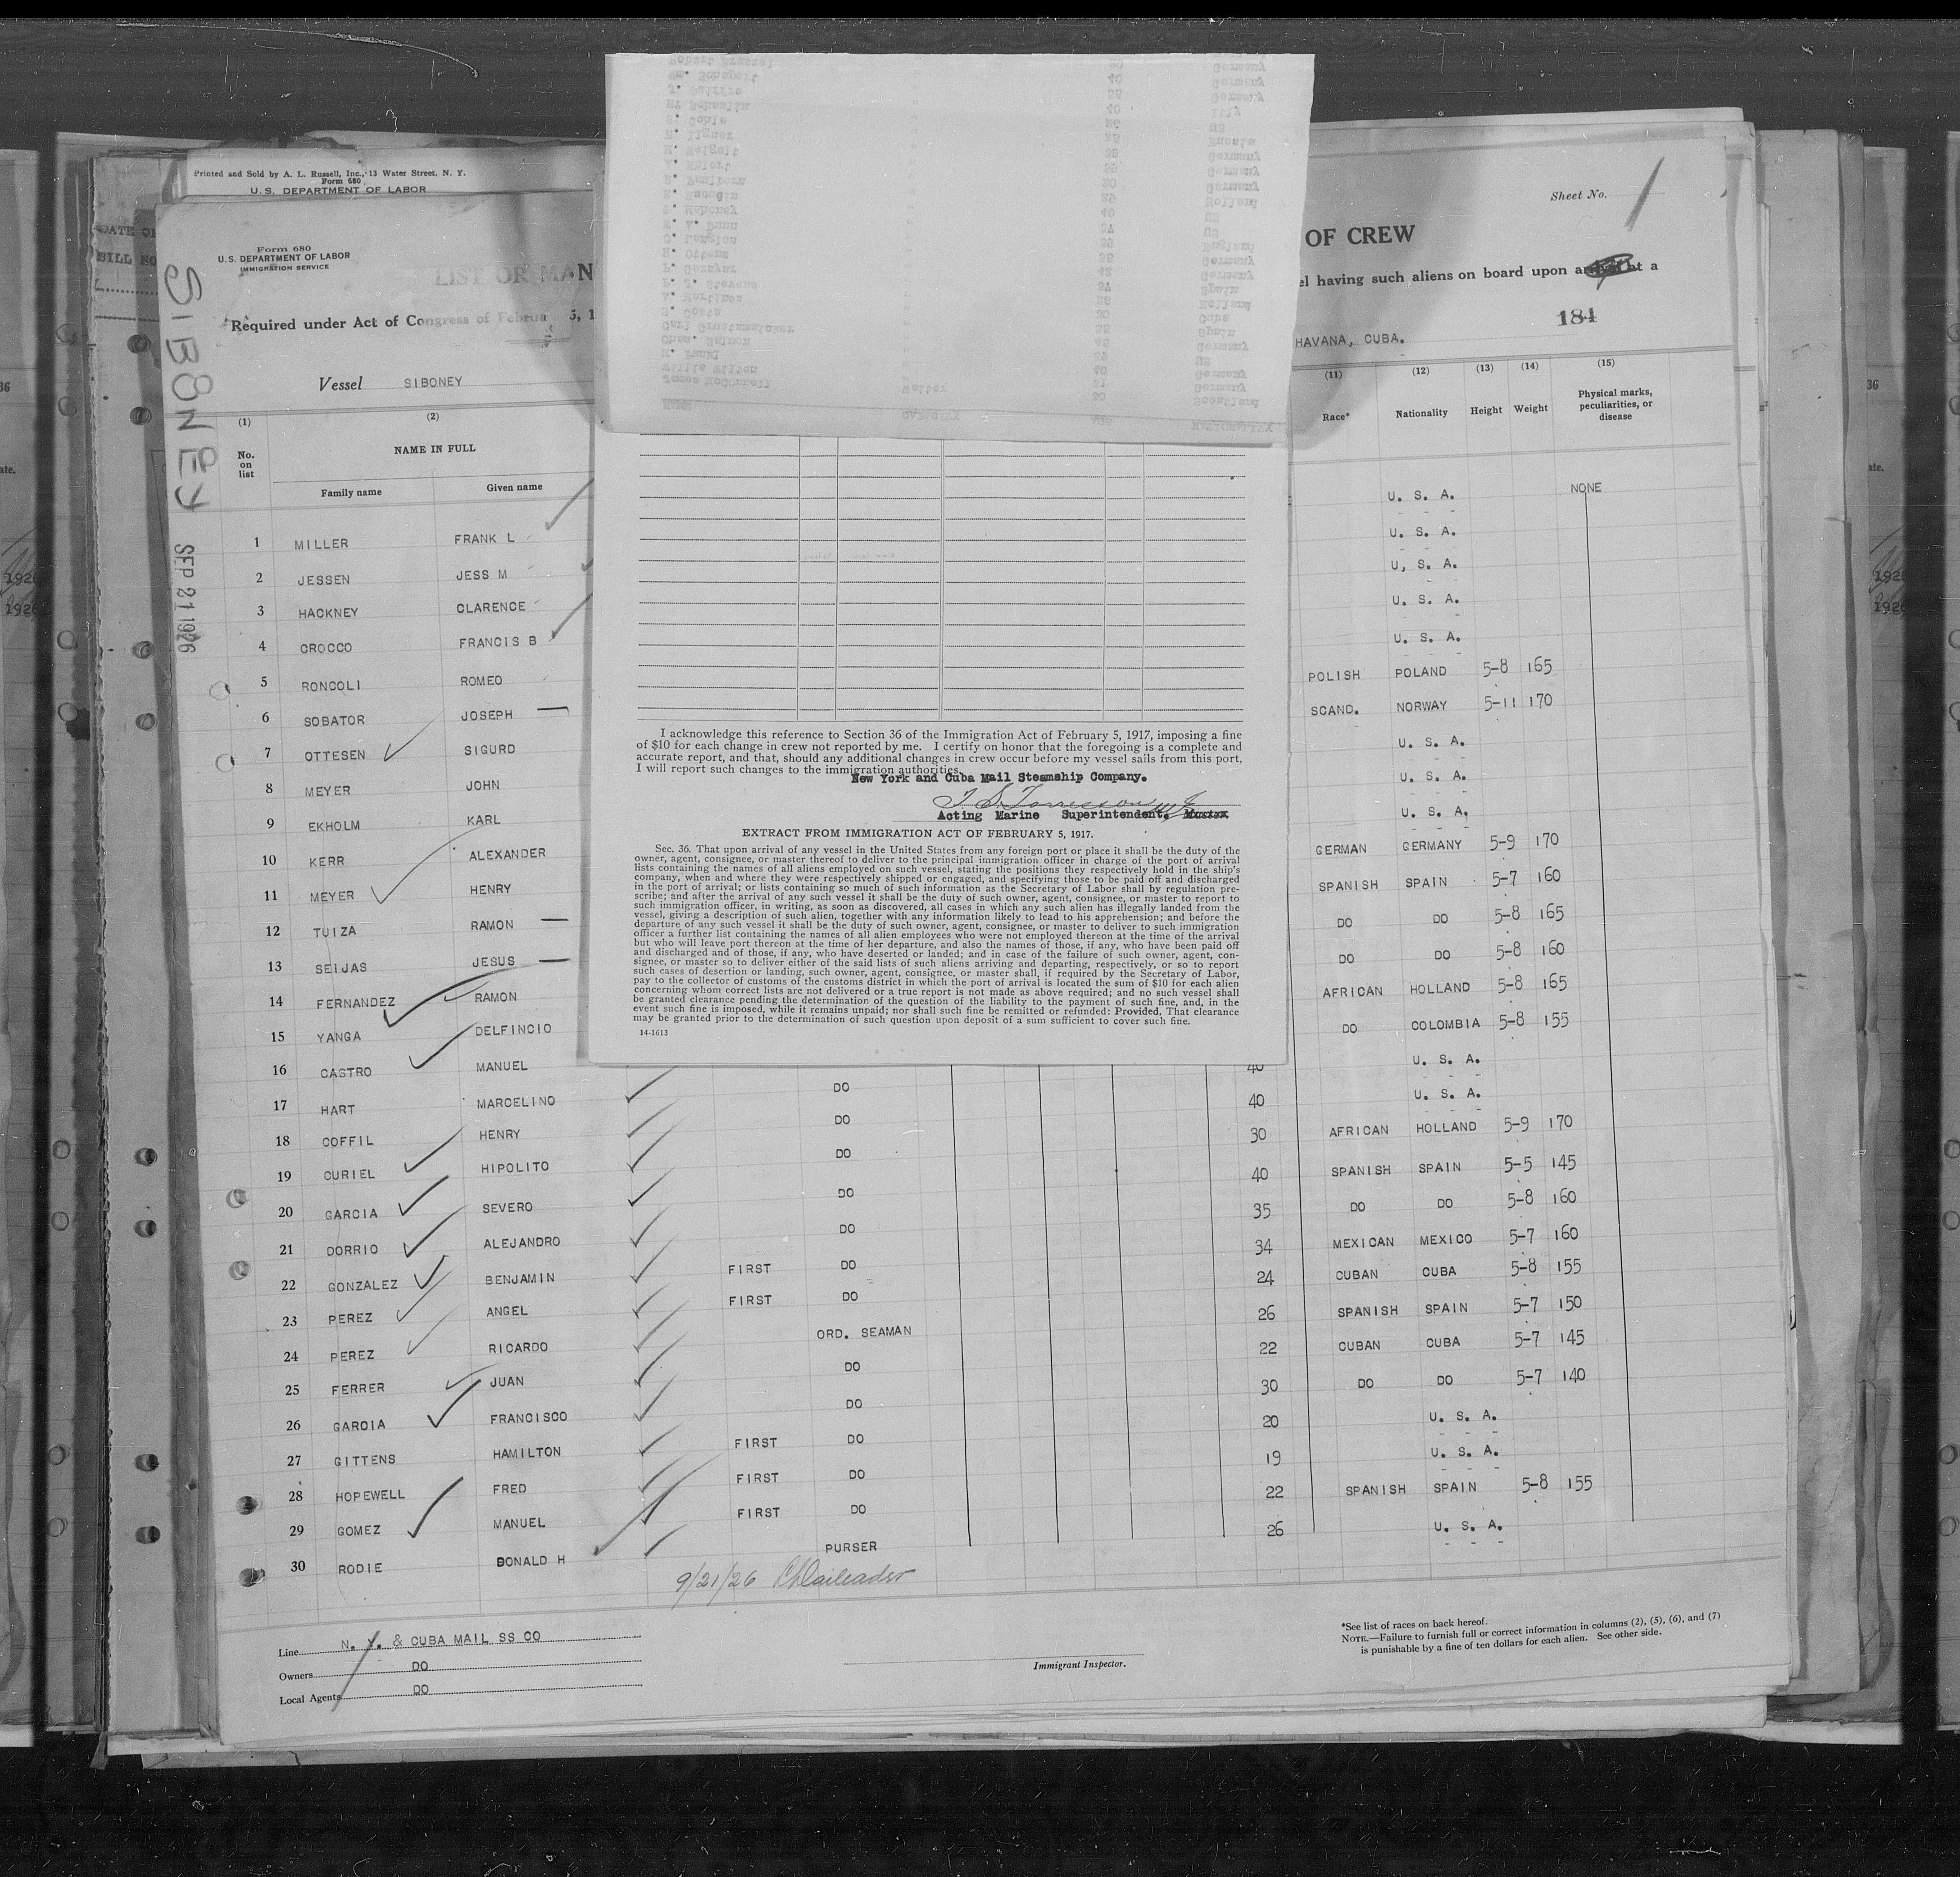 Printed and Sold by A. L. Russell, Inc., 13 Water Street, N. Y.
Form 680
U. S. DEPARTMENT OF LABOR
Sheet No. 1
Form 680
U. S. DEPARTMENT OF LABOR
IMMIGRATION SERVICE
LIST OR MAN
OF CREW
Required under Act of Congress of Februa 5, 1
el having such aliens on board upon arrival at a
184
HAVANA, CUBA.
Vessel SIBONEY
SIBONEY
SEP 21 1926
(1) (2) (11) (12) (13) (14) (15)
No. on list NAME IN FULL Race* Nationality Height Weight Physical marks, peculiarities, or disease
Family name Given name
1 MILLER FRANK L U. S. A. NONE
2 JESSEN JESS M U. S. A.
3 HACKNEY CLARENCE U, S. A.
4 CROCCO FRANCIS B U. S. A.
5 RONCOLI ROMEO U. S. A.
6 SOBATOR JOSEPH POLISH POLAND 5-8 165
7 OTTESEN SIGURD SCAND. NORWAY 5-11 170
8 MEYER JOHN U. S. A.
9 EKHOLM KARL U. S. A.
10 KERR ALEXANDER U. S. A.
11 MEYER HENRY GERMAN GERMANY 5-9 170
12 TUIZA RAMON SPANISH SPAIN 5-7 160
13 SEIJAS JESUS DO DO 5-8 165
14 FERNANDEZ RAMON DO DO 5-8 160
15 YANGA DELFINCIO AFRICAN HOLLAND 5-8 165
16 CASTRO MANUEL 40 DO COLOMBIA 5-8 155
17 HART MARCELINO DO 40 U. S. A.
18 COFFIL HENRY DO 40 U. S. A.
19 CURIEL HIPOLITO DO 30 AFRICAN HOLLAND 5-9 170
20 GARCIA SEVERO DO 40 SPANISH SPAIN 5-5 145
21 DORRIO ALEJANDRO DO 35 DO DO 5-8 160
22 GONZALEZ BENJAMIN FIRST DO 34 MEXICAN MEXICO 5-7 160
23 PEREZ ANGEL FIRST DO 24 CUBAN CUBA 5-8 155
24 PEREZ RICARDO ORD. SEAMAN 26 SPANISH SPAIN 5-7 150
25 FERRER JUAN DO 22 CUBAN CUBA 5-7 145
26 GARCIA FRANCISCO DO 30 DO DO 5-7 140
27 GITTENS HAMILTON FIRST DO 20 U. S. A.
28 HOPEWELL FRED FIRST DO 19 U. S. A.
29 GOMEZ MANUEL FIRST DO 22 SPANISH SPAIN 5-8 155
30 RODIE DONALD H PURSER 26 U. S. A.
9/21/26
Line N. Y. & CUBA MAIL SS CO
Owners DO
Local Agents DO
Immigrant Inspector.
*See list of races on back hereof.
NOTE.—Failure to furnish full or correct information in columns (2), (5), (6), and (7)
is punishable by a fine of ten dollars for each alien. See other side.
I acknowledge this reference to Section 36 of the Immigration Act of February 5, 1917, imposing a fine
of $10 for each change in crew not reported by me. I certify on honor that the foregoing is a complete and
accurate report, and that, should any additional changes in crew occur before my vessel sails from this port,
I will report such changes to the immigration authorities.
New York and Cuba Mail Steamship Company.
Acting Marine Superintendent, Master
EXTRACT FROM IMMIGRATION ACT OF FEBRUARY 5, 1917.
Sec. 36. That upon arrival of any vessel in the United States from any foreign port or place it shall be the duty of the
owner, agent, consignee, or master thereof to deliver to the principal immigration officer in charge of the port of arrival
lists containing the names of all aliens employed on such vessel, stating the positions they respectively hold in the ship's
company, when and where they were respectively shipped or engaged, and specifying those to be paid off and discharged
in the port of arrival; or lists containing so much of such information as the Secretary of Labor shall by regulation pre-
scribe; and after the arrival of any such vessel it shall be the duty of such owner, agent, consignee, or master to report to
such immigration officer, in writing, as soon as discovered, all cases in which any such alien has illegally landed from the
vessel, giving a description of such alien, together with any information likely to lead to his apprehension; and before the
departure of any such vessel it shall be the duty of such owner, agent, consignee, or master to deliver to such immigration
officer a further list containing the names of all alien employees who were not employed thereon at the time of the arrival
but who will leave port thereon at the time of her departure, and also the names of those, if any, who have been paid off
and discharged and of those, if any, who have deserted or landed; and in case of the failure of such owner, agent, con-
signee, or master so to deliver either of the said lists of such aliens arriving and departing, respectively, or so to report
such cases of desertion or landing, such owner, agent, consignee, or master shall, if required by the Secretary of Labor,
pay to the collector of customs of the customs district in which the port of arrival is located the sum of $10 for each alien
concerning whom correct lists are not delivered or a true report is not made as above required; and no such vessel shall
be granted clearance pending the determination of the question of the liability to the payment of such fine, and, in the
event such fine is imposed, while it remains unpaid; nor shall such fine be remitted or refunded: Provided, That clearance
may be granted prior to the determination of such question upon deposit of a sum sufficient to cover such fine.
14-1613